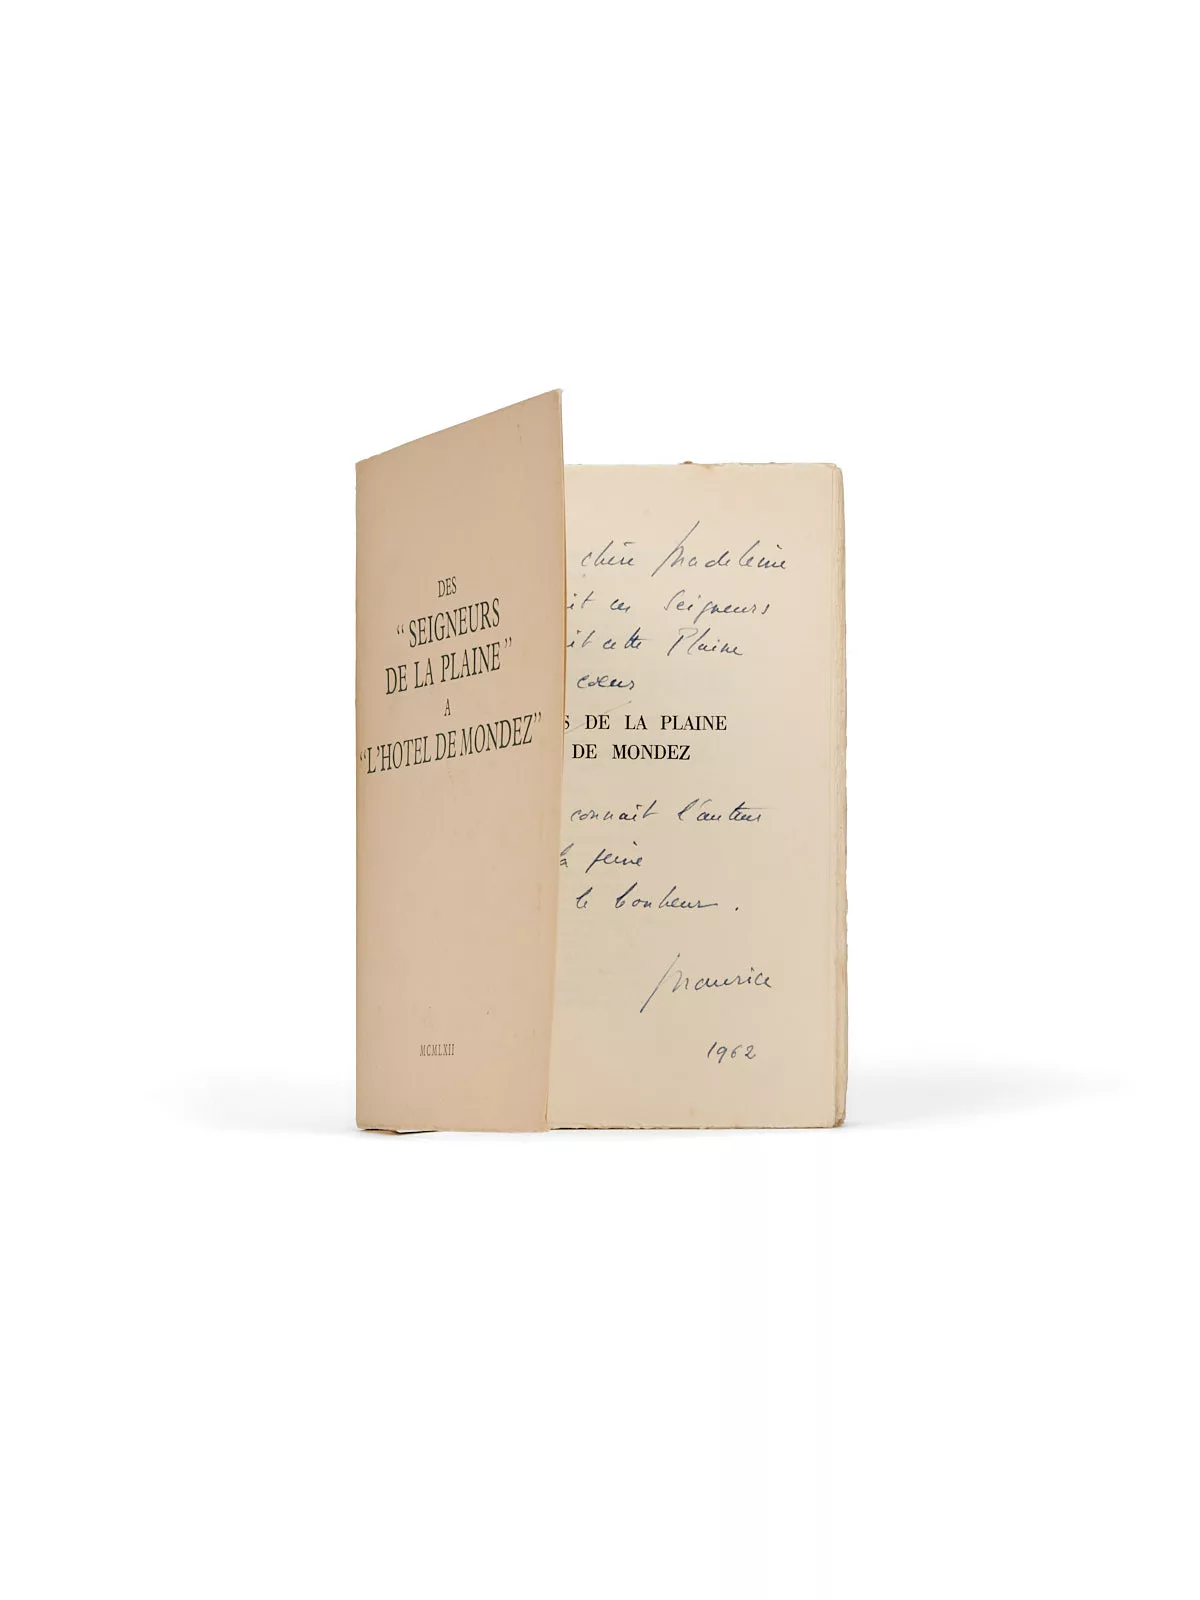 DES
"SEIGNEURS
DE LA PLAINE"
A
"L'HOTEL DE MONDEZ"
MCMLXII
chère Madeleine
it ces Seigneurs
it cette Plaine
cœurs
S DE LA PLAINE
DE MONDEZ
connait l'auteur
la peine
le bonheur.
Maurice
1962